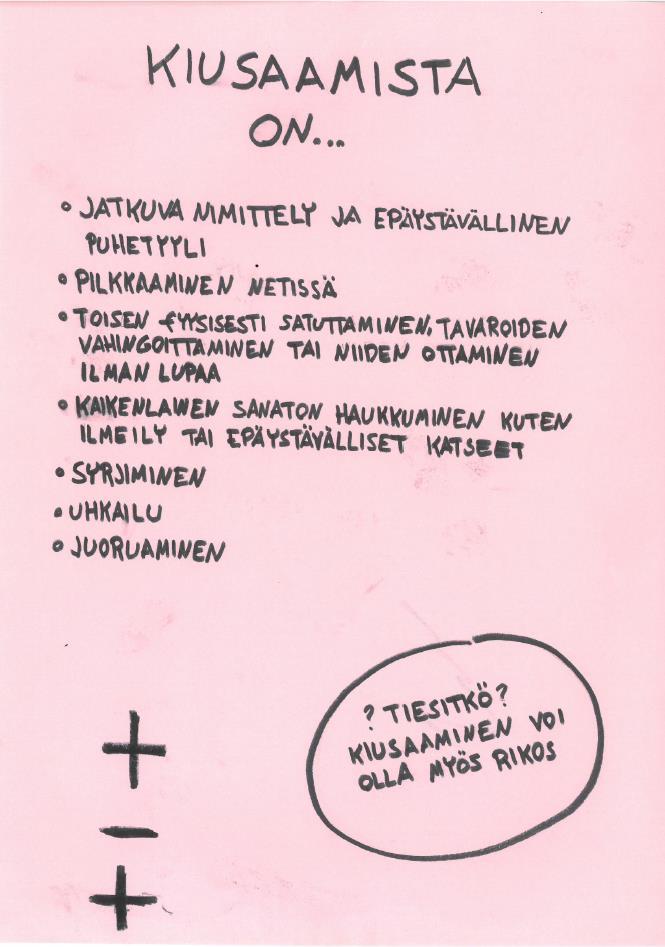 KIUSAAMISTA
ON...
• JATKUVA NIMITTELY JA EPÄYSTÄVÄLLINEN
PUHETYYLI
• PILKKAAMINEN NETISSÄ
• TOISEN FYYSISESTI SATUTTAMINEN, TAVAROIDEN
VAHINGOITTAMINEN TAI NIIDEN OTTAMINEN
ILMAN LUPAA
• KAIKENLAINEN SANATON HAUKKUMINEN KUTEN
ILMEILY TAI EPÄYSTÄVÄLLISET KATSEET
• SYRJIMINEN
• UHKAILU
• JUORUAMINEN
? TIESITKÖ?
KIUSAAMINEN VOI
OLLA MYÖS RIKOS
+
-
+